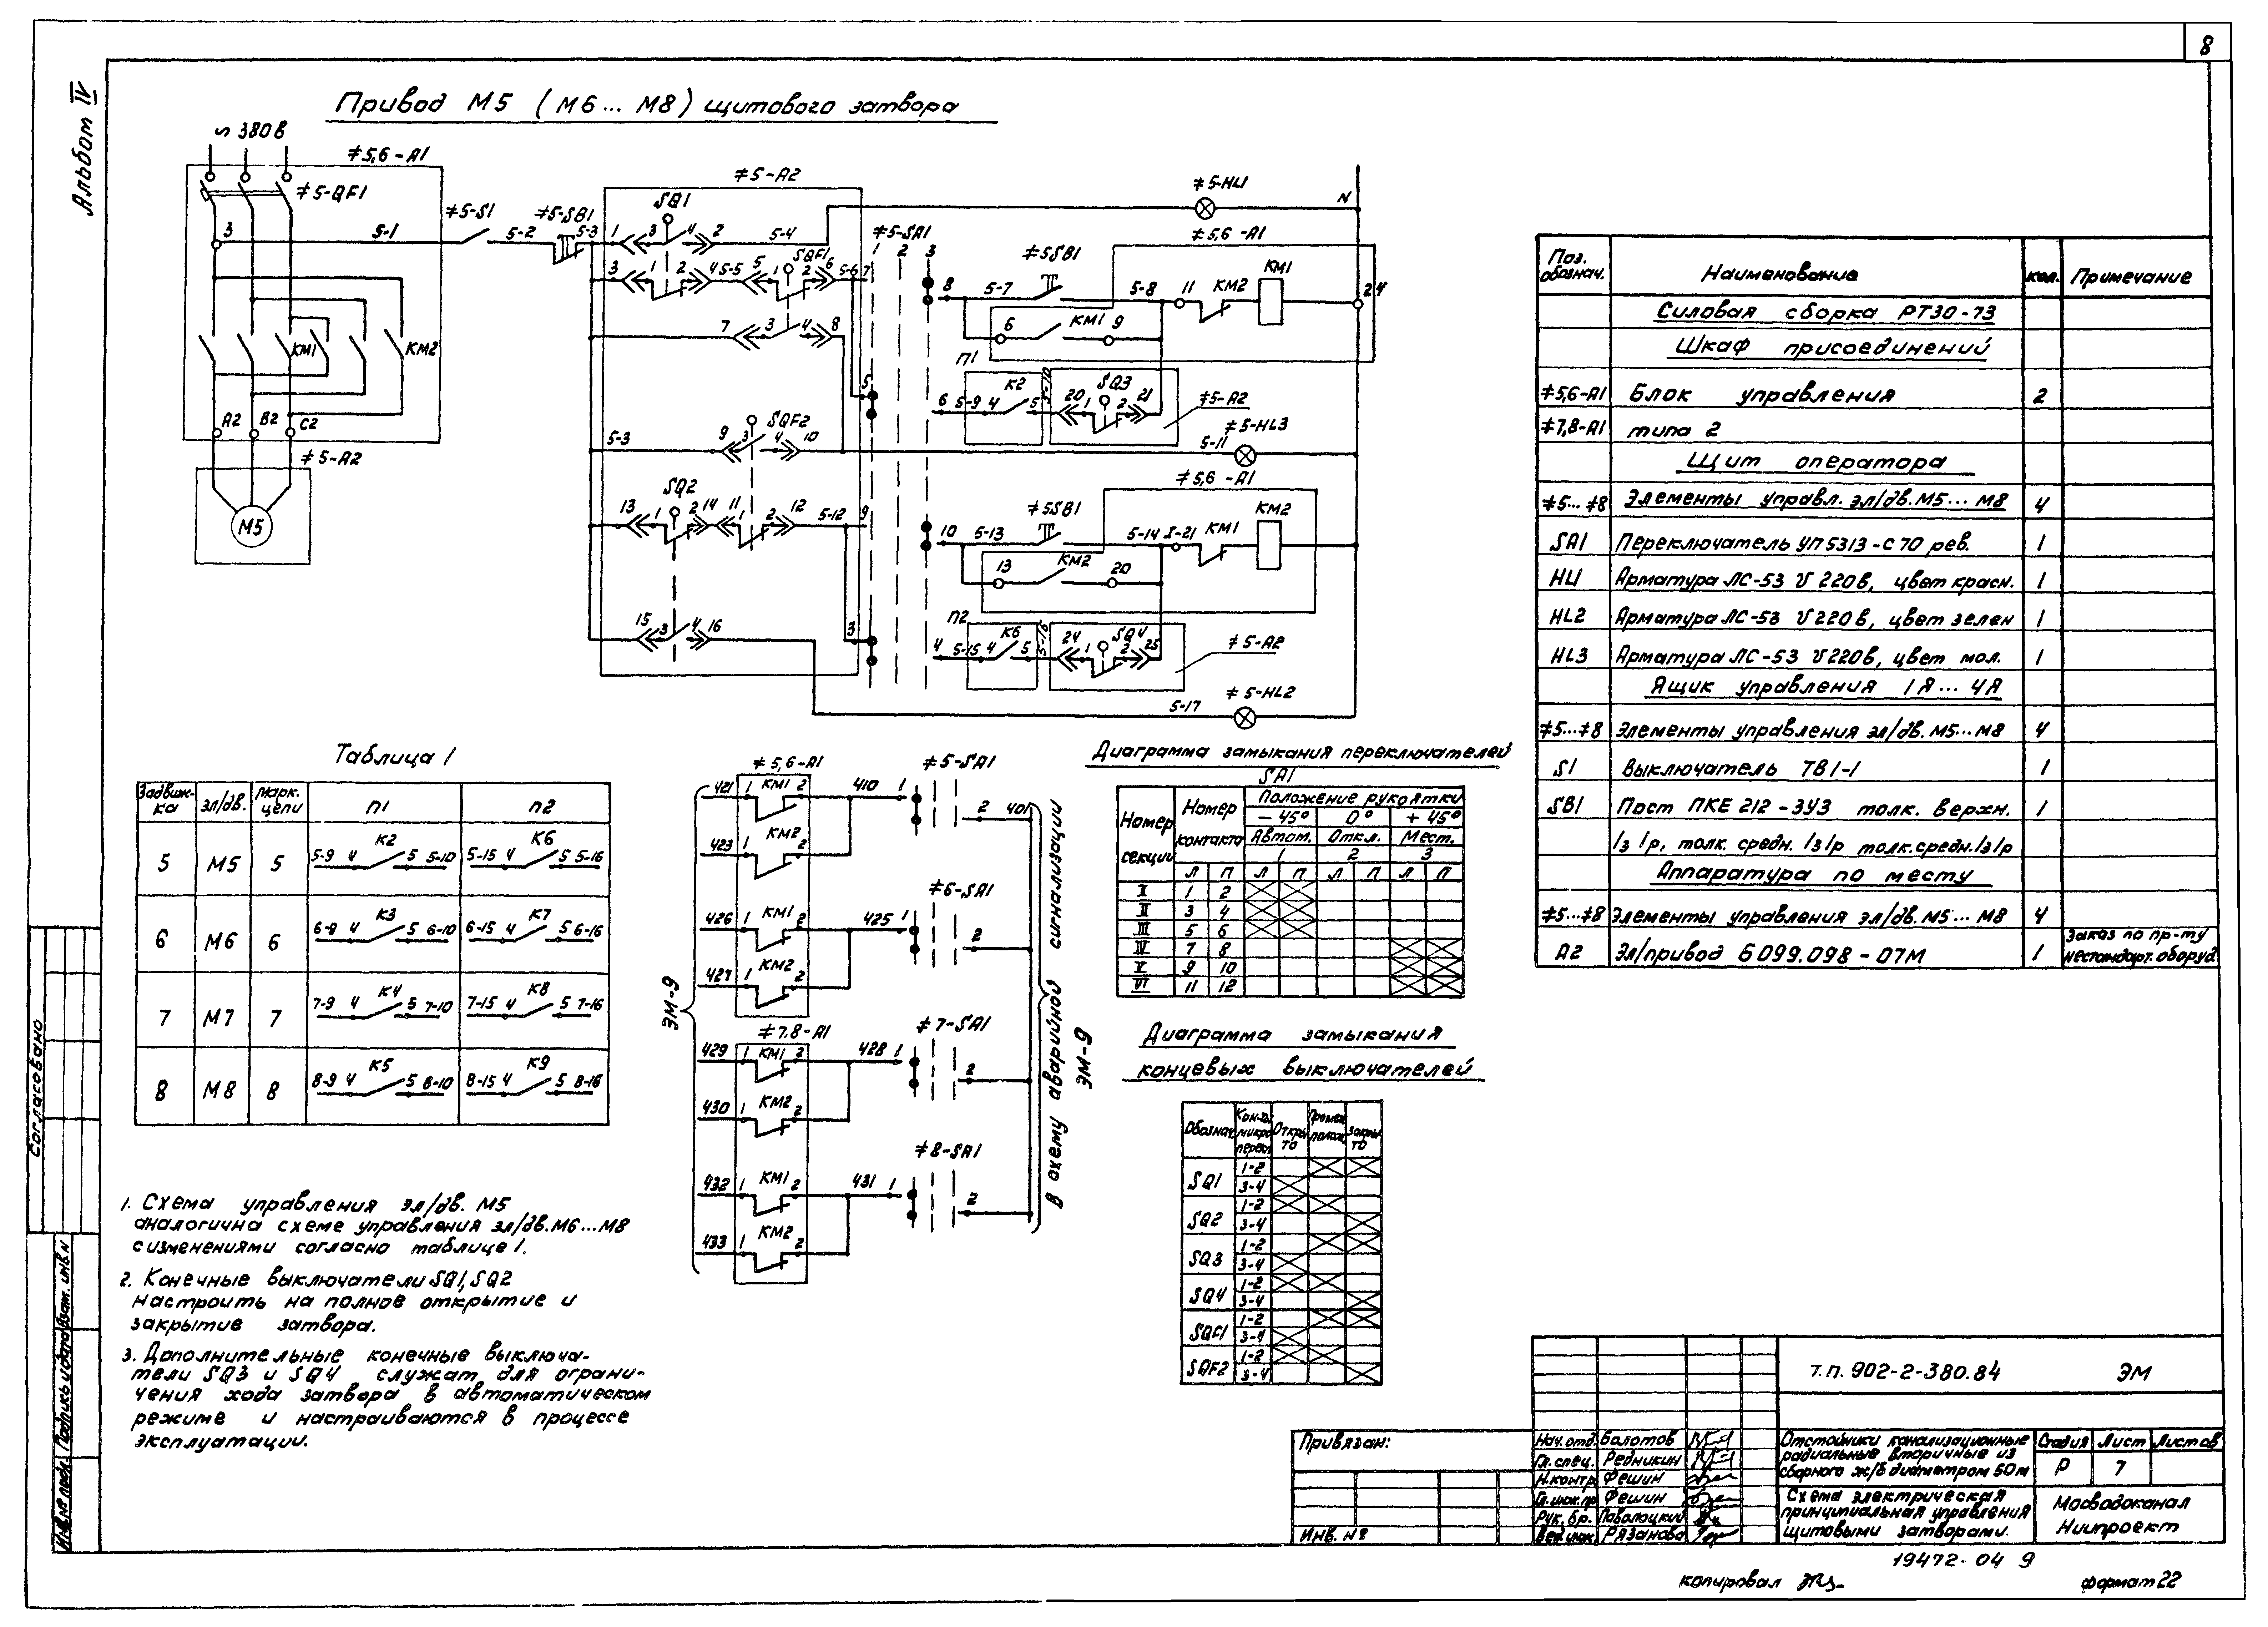 8
Альбом IV
Привод М5 (М6... М8) щитового затвора
∿ 380 В
≠5,6-А1
≠5-QF1
3
5-1
≠5-S1
5-2
≠5-SB1
5-3
КМ1
КМ2
А2
В2
С2
≠5-А2
М5
≠5-А2
SQ1
1 3 4 2
5-4
3 1 2 4 5-5 5 1 SQF1 2 6 5-6 7
7 3 4 8
5
5-3 9 3 SQF2 4 10
SQ2
13 1 2 14 11 1 2 12 5-12 9
15 3 4 16
3
≠5-SA1
1 2 3
≠5-HL1
N
≠5,6-А1
≠5SB1
8 5-7 5-8 11 КМ2 КМ1 24
6 КМ1 9
П1
6 5-9 4 К2 5 5-10 20 1 SQ3 2 21
≠5-А2
≠5-HL3
5-11
≠5,6-А1
≠5SB1
КМ2
10 5-13 5-14 5-21 КМ1
13 КМ2 20
П2
4 5-15 4 К6 5 5-16 24 1 SQ4 2 25
≠5-А2
≠5-HL2
5-17
Поз. обознач.
Наименование
кол.
Примечание
Силовая сборка РТ30-73
Шкаф присоединений
≠5,6-А1 Блок управления 2
≠7,8-А1 типа 2
Щит оператора
≠5...≠8 Элементы управл. эл/дв. М5... М8 4
SA1 Переключатель УП5313-С70 рев. 1
HL1 Арматура ЛС-53 U 220в, цвет красн. 1
HL2 Арматура ЛС-53 U 220в, цвет зелен 1
HL3 Арматура ЛС-53 U 220в, цвет мол. 1
Ящик управления 1Я... 4Я
≠5...≠8 Элементы управления эл/дв. М5...М8 4
S1 Выключатель ТВ1-1 1
SB1 Пост ПКЕ 212-3У3 толк. верхн. 1
1з 1р, толк. средн. 1з 1р толк. средн. 1з 1р
Аппаратура по месту
≠5...≠8 Элементы управления эл/дв. М5... М8 4
А2 Эл/привод Б099.098-07М 1
Заказ по пр-ту
нестандарт. оборуд
Таблица 1
Задвиж-
ка
эл/дв.
Марк.
цепи
П1
П2
5 М5 5 5-9 4 К2 5 5-10 5-15 4 К6 5 5-16
6 М6 6 6-9 4 К3 5 6-10 6-15 4 К7 5 6-16
7 М7 7 7-9 4 К4 5 7-10 7-15 4 К8 5 7-16
8 М8 8 8-9 4 К5 5 8-10 8-15 4 К9 5 8-16
ЭМ-9
≠5,6-А1
≠5-SA1
421 1 КМ1 2 410 1
2 401
423 1 КМ2 2
≠6-SA1
426 1 КМ1 2 425 1
2
427 1 КМ2 2
≠7,8-А1
≠7-SA1
429 1 КМ1 2 428 1
2
430 1 КМ2 2
≠8-SA1
432 1 КМ1 2 431 1
2
433 1 КМ2 2
в схему аварийной сигнализации
ЭМ-9
Диаграмма замыкания переключателей
SA1
Номер
секции
Номер
контакта
Положение рукоятки
-45° 0° +45°
Автом. Откл. Мест.
1 2 3
Л П Л П Л П Л П
I 1 2
II 3 4
III 5 6
IV 7 8
V 9 10
VI 11 12
Диаграмма замыкания
концевых выключателей
Обознач.
Кон-ты
микро
перекл
Откры
то
Промеж
полож.
Закры
то
SQ1 1-2
3-4
SQ2 1-2
3-4
SQ3 1-2
3-4
SQ4 1-2
3-4
SQF1 1-2
3-4
SQF2 1-2
3-4
1. Схема управления эл/дв. М5
аналогична схеме управления эл/дв. М6...М8
с изменениями согласно таблице 1.
2. Конечные выключатели SQ1, SQ2
настроить на полное открытие и
закрытие затвора.
3. Дополнительные конечные выключа-
тели SQ3 и SQ4 служат для ограни-
чения хода затвора в автоматическом
режиме и настраиваются в процессе
эксплуатации.
Согласовано
Инв. № подл.
Подпись и дата
Взам. инв. №
Привязан:
Инв. №
Нач. отд. Болотов
Гл. спец. Редникин
Н. контр Фешин
Гл. инж. пр Фешин
Рук. бр. Паволоцкий
Вед. инж. Рязанова
Т.П. 902-2-380.84 ЭМ
Отстойники канализационные
радиальные вторичные из
сборного ж/б диаметром 50м
Стадия Лист Листов
Р 7
Схема электрическая
принципиальная управления
щитовыми затворами.
Мосводоканал
Ниипроект
19472-04 9
копировал
формат 22